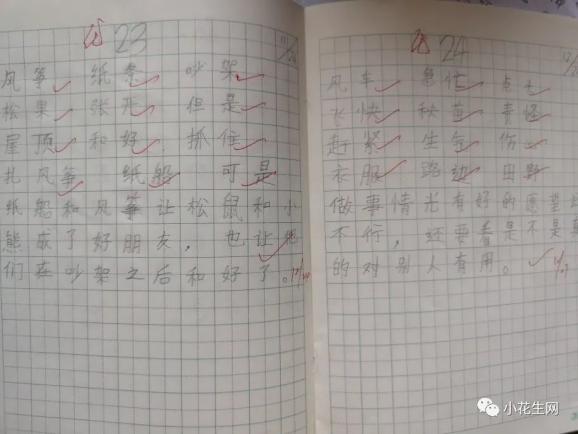 23
风筝 纸条 吵架
松果 张开 但是
屋顶 和好 抓住
扎风筝 纸船 可是
纸船和风筝让松鼠和小
熊成了好朋友，也让他
们在吵架之后和好了。
24
风车 急忙
飞快 秧苗 责怪
赶紧 生气 伤
衣服 路边 田野
做事情光有好的愿望
不行，还要看是不是真
的对别人有用。
小花生网